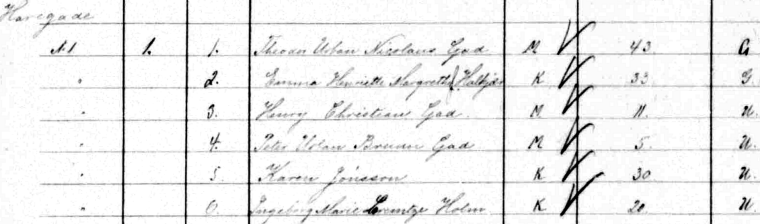 Havegade
No 1 1. 1. Theodor Urban Nicolaus Gad M 43 G
" 2. Emma Henriette Margrethe Holbjør K 33 G
" 3. Henry Christian Gad M 11. U.
" 4. Peter Urban Bruun Gad M 5. U.
" 5. Karen Jönsson K 30 U
" 6. Ingeborg Marie Lorentze Holm K 20 U